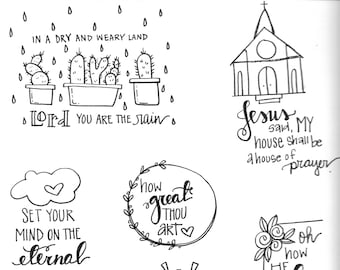 IN A DRY AND WEARY LAND
Lord YOU ARE THE rain
Jesus
said, MY
house shall be
a house of prayer
SET YOUR
MIND ON THE
eternal
how
great
THOU
ART
oh
how
HE